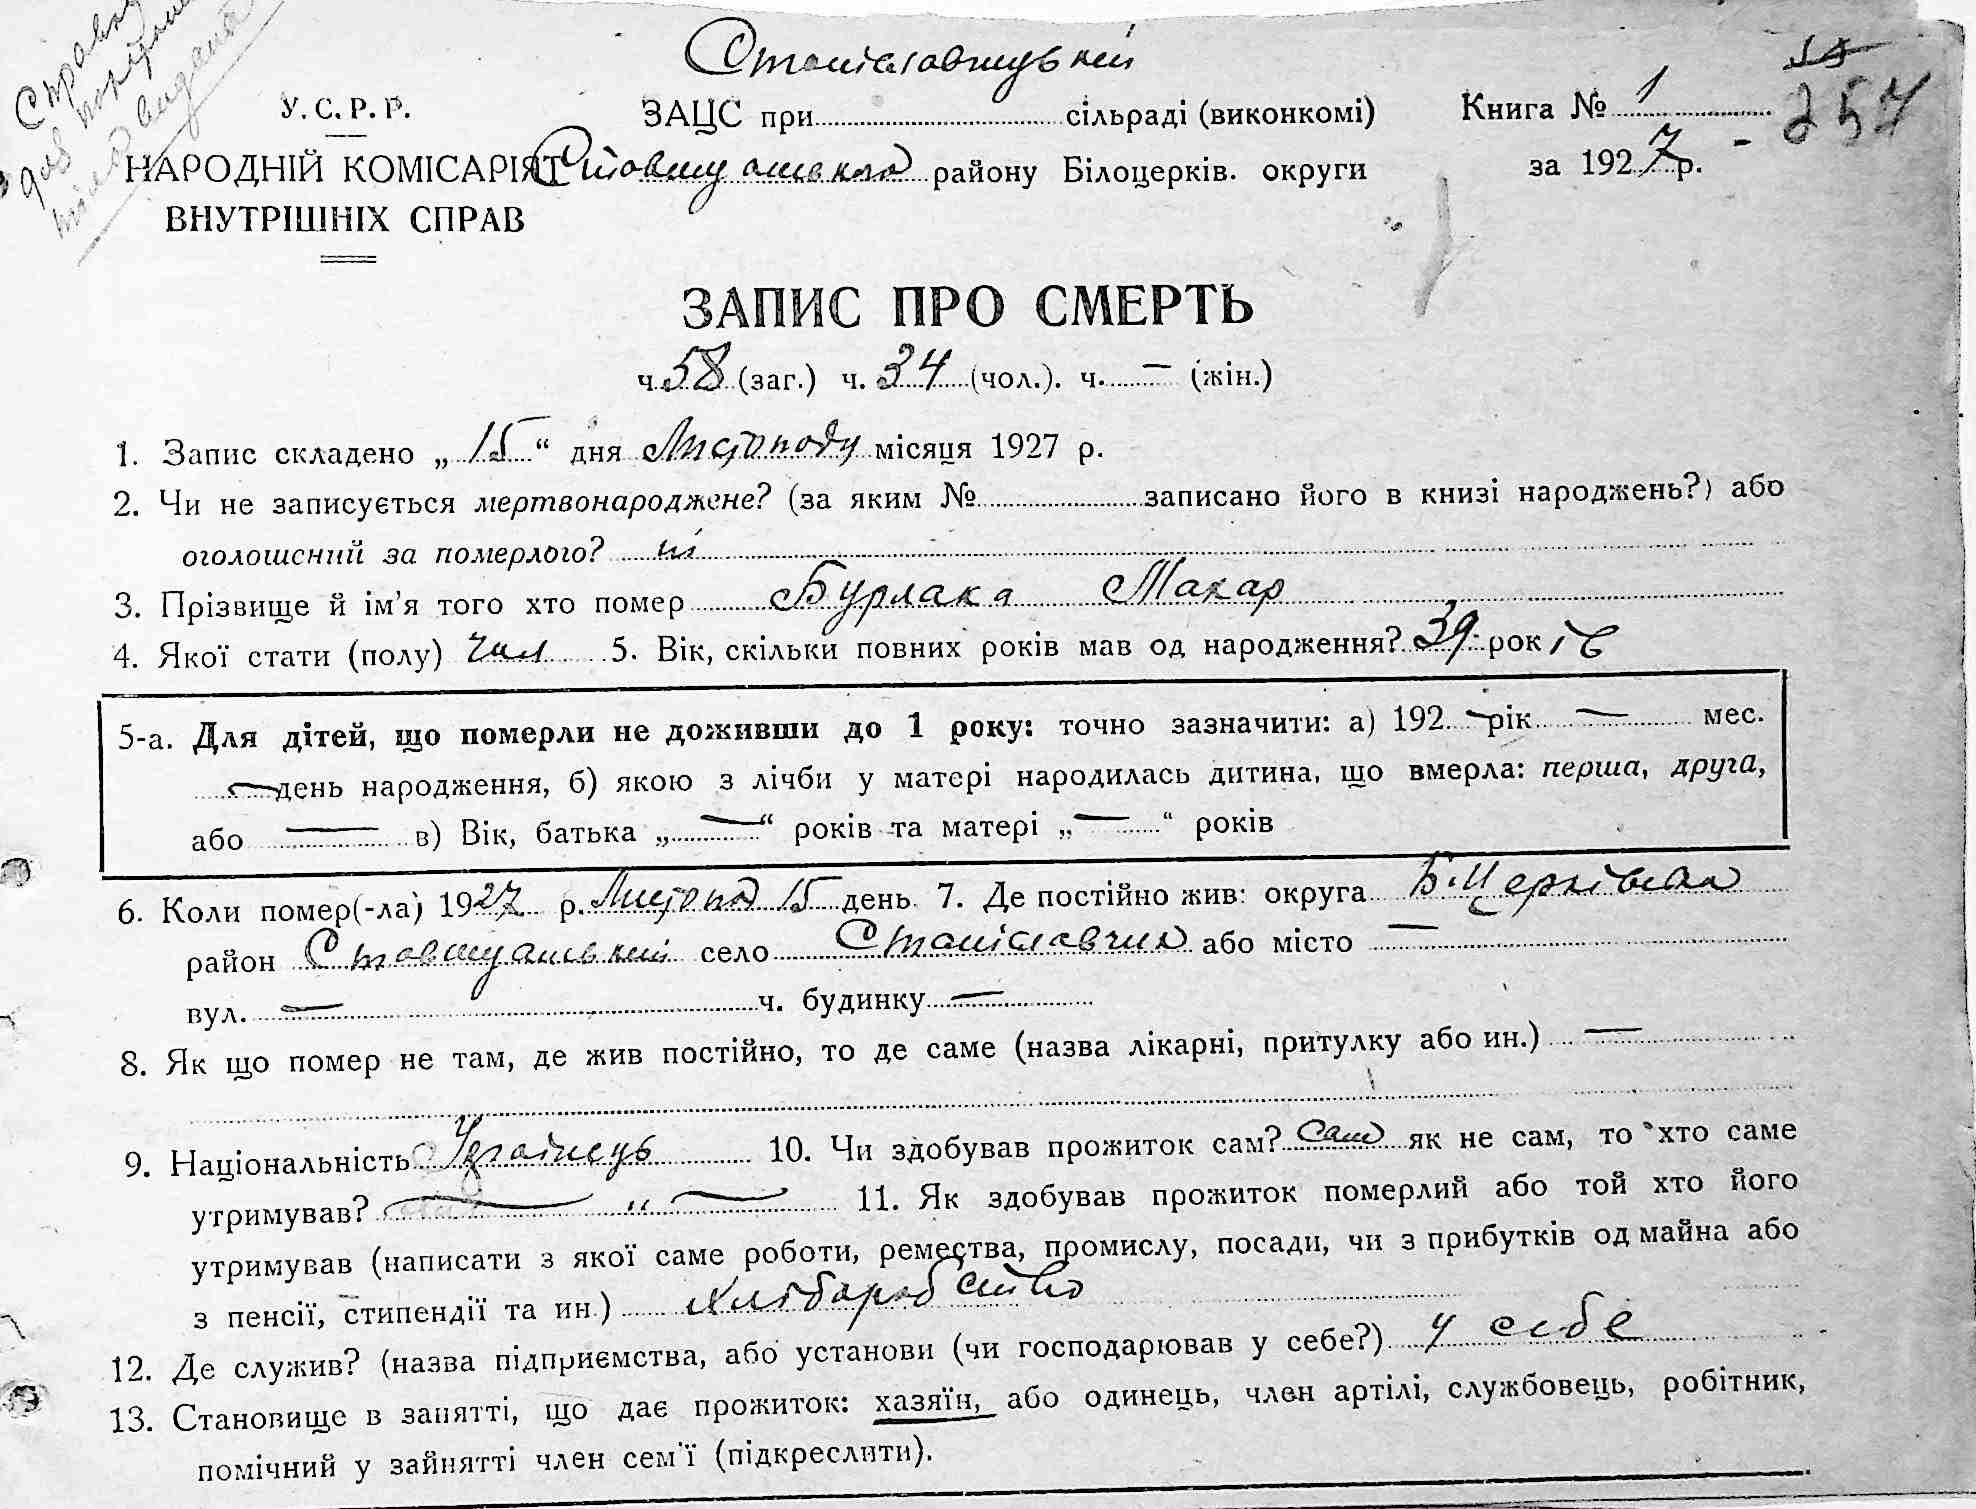 Справка
для
видана
Станіславчицькій
У.С.Р.Р. ЗАЦС при сільраді (виконкомі) Книга № 1 257
НАРОДНІЙ КОМІСАРІЯТ району Білоцерків. округи за 1927 р. -
ВНУТРІШНІХ СПРАВ
ЗАПИС ПРО СМЕРТЬ
ч. 58 (заг.) ч. 34 (чол.). ч. — (жін.)
1. Запис складено „15“ дня Листопаду місяця 1927 р.
2. Чи не записується мертвонароджене? (за яким № записано його в книзі народжень?) або
оголошений за померлого? ні
3. Прізвище й ім'я того хто помер Бурлака Макар
4. Якої стати (полу) Чол 5. Вік, скільки повних років мав од народження? 39 років
5-а. Для дітей, що померли не доживши до 1 року: точно зазначити: а) 192 — рік — мес.
— день народження, б) якою з лічби у матері народилась дитина, що вмерла: перша, друга,
або — в) Вік, батька „—“ років та матері „—“ років
6. Коли помер(-ла) 1927 р. Листопад 15 день 7. Де постійно жив: округа Б-Церківська
район Ставищанський село Станіславчик або місто —
вул. — ч. будинку —
8. Як що помер не там, де жив постійно, то де саме (назва лікарні, притулку або ин.) —
9. Національність Українець 10. Чи здобував прожиток сам? Сам як не сам, то хто саме
утримував? — „ — 11. Як здобував прожиток померлий або той хто його
утримував (написати з якої саме роботи, ремества, промислу, посади, чи з прибутків од майна або
з пенсії, стипендії та ин.) хліборобство
12. Де служив? (назва підприємства, або установи (чи господарював у себе?) у себе
13. Становище в занятті, що дає прожиток: хазяїн, або одинець, член артілі, службовець, робітник,
помічний у зайнятті член сем'ї (підкреслити).